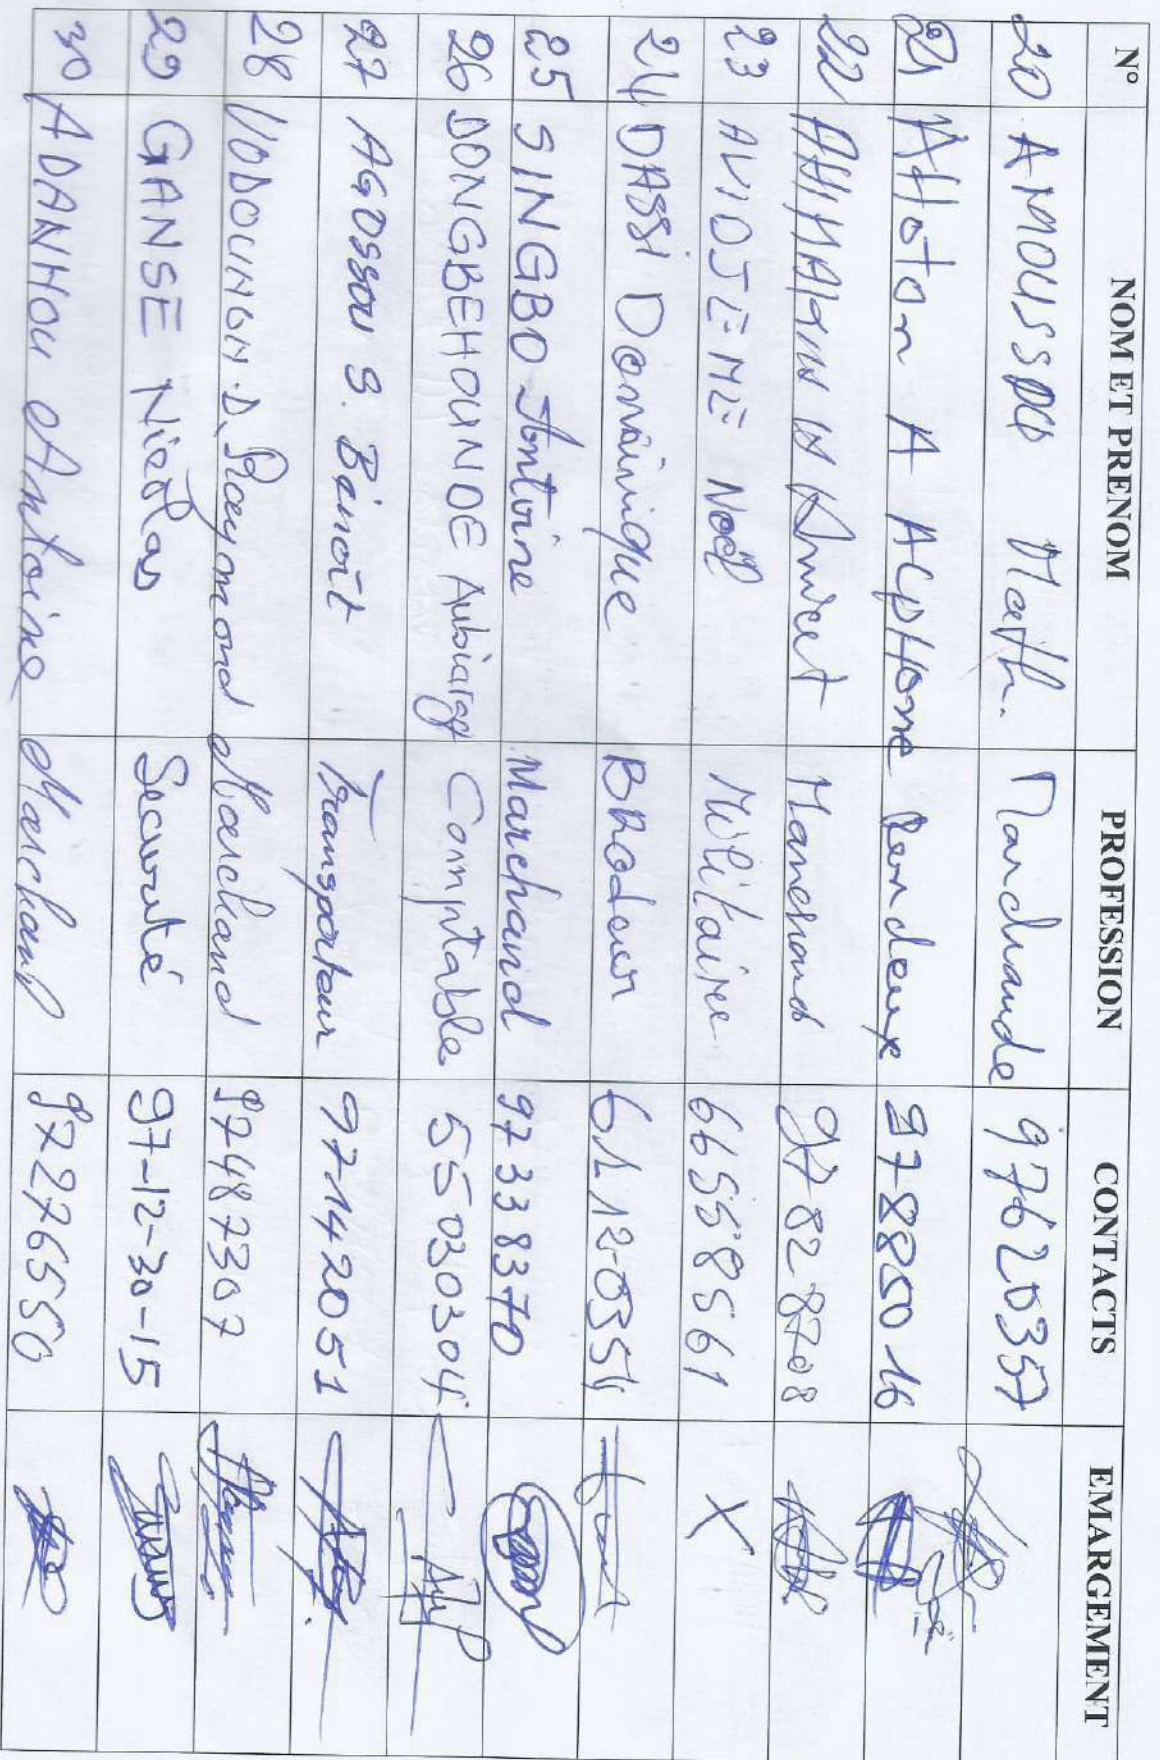 N° NOM ET PRENOM PROFESSION CONTACTS EMARGEMENT
20 AMOUSSOU Math. Marchande 97620357
21 AHoton A AlpHonse 97888016
22 Marchand 97828708
23 AVIDJEME Noël Militaire 66558561 X
24 DASSI Dominique BRodeur 61120354
25 SINGBO Antoine Marchand 97338370
26 DONGBEHOUNDE Comptable 55030304
27 AGOSSOU S. Bénoît Transporteur 97142051
28 VODOUNON D. Raymond Marchand 97487307
29 GANSE Nicolas Securité 97-12-30-15
30 ADANHOU Antoine Marchand 97276550